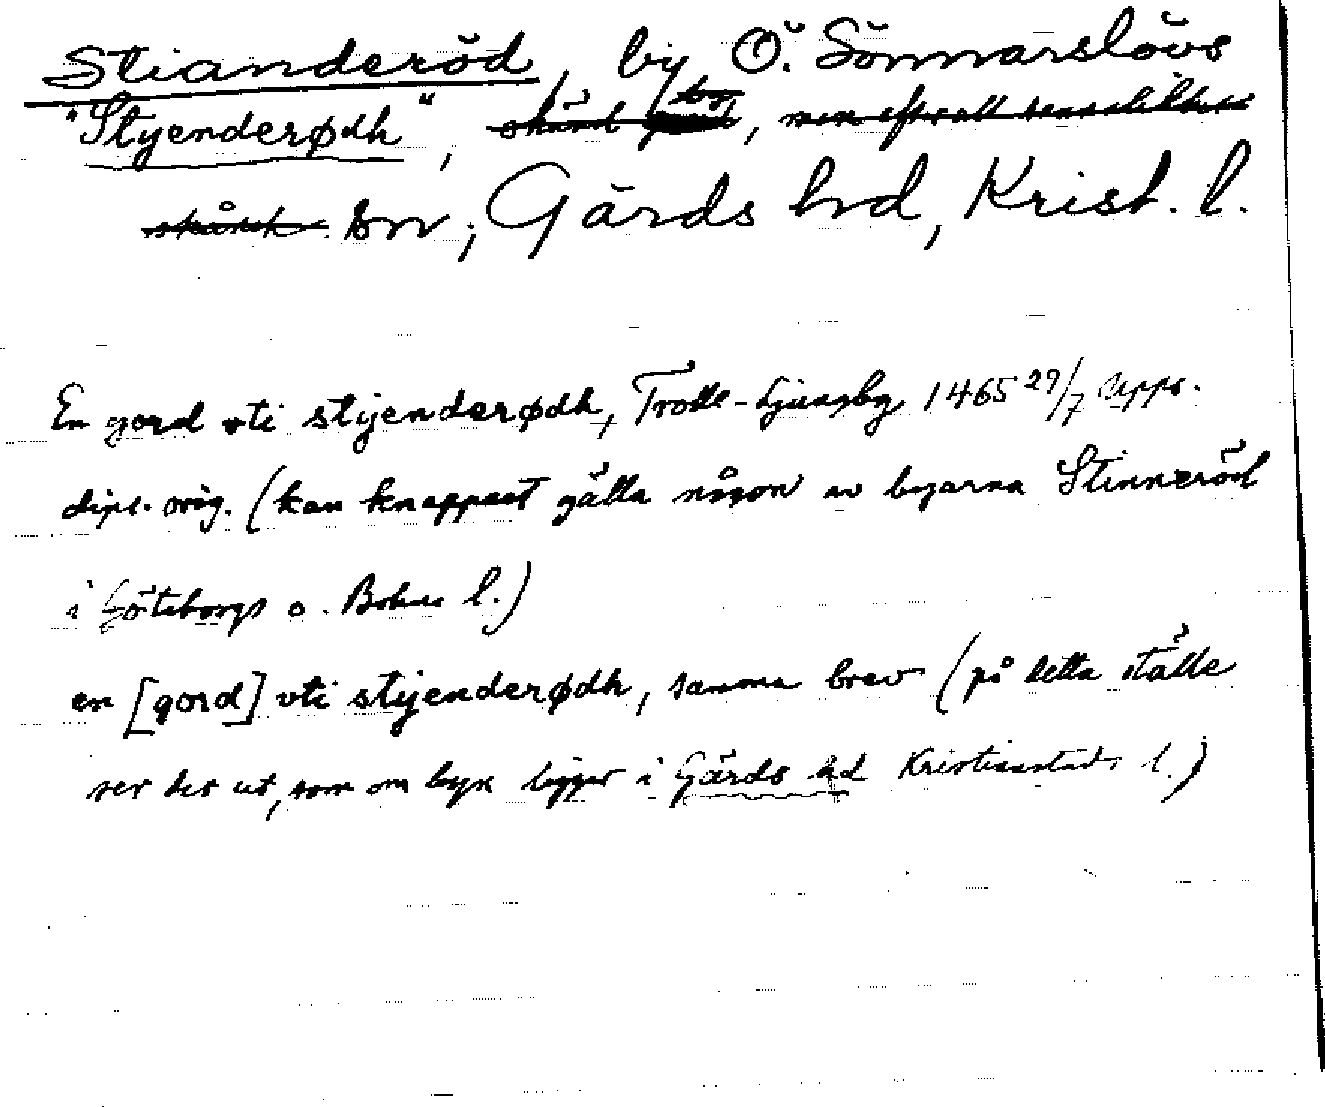 Stianderöd, by, Ö. Sönnarslövs
"Styenderødh", okänd by, men efter allt sannolikhet
skånsk. sn, Gärds hd, Krist. l.
En gord vti stijenderødh, Trolle-Ljungby 1465 29/7 Upps.
dipl. orig. (kan knappast gälla någon av byarna Stinneröd
i Göteborgs o. Bohus l.)
en [gord] vti stijenderødh, samma brev (på detta ställe
ser det ut, som om byn ligger i Gärds hd Kristianstads l.)